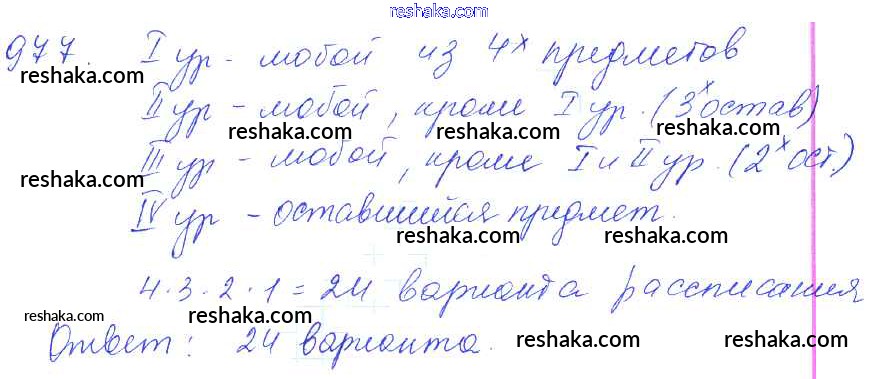 reshaka.com
977. I ур - любой из 4х предметов
reshaka.com reshaka.com
II ур - любой, кроме I ур. (3х остав)
reshaka.com reshaka.com
III ур - любой, кроме I и II ур. (2х ост.)
reshaka.com
IV ур - оставшийся предмет.
reshaka.com reshaka.com
4 · 3 · 2 · 1 = 24 варианта рассписания
reshaka.com reshaka.com reshaka.com
Ответ: 24 варианта.
reshaka.com reshaka.com